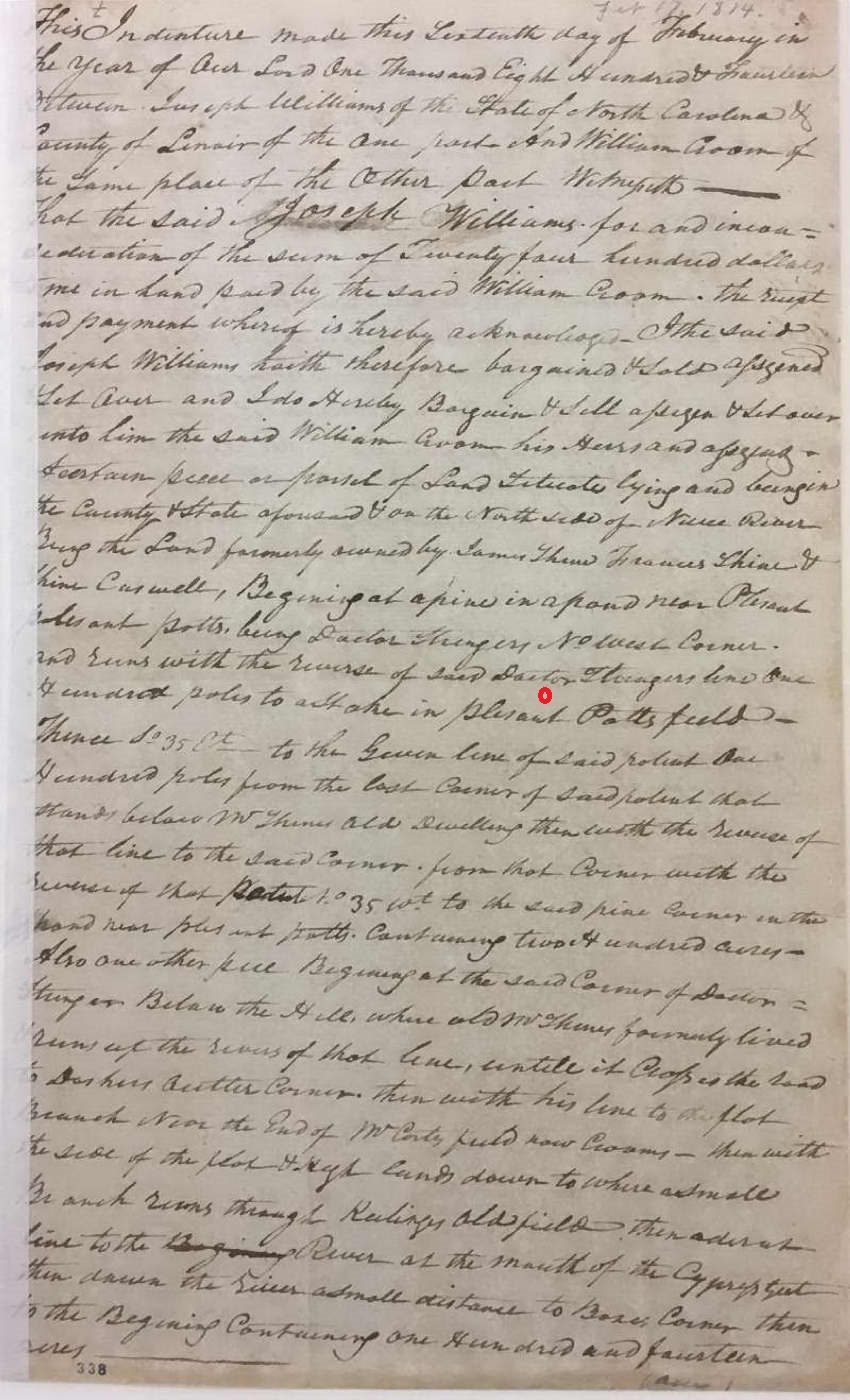 Feb 17, 1814.
This Indenture made this Sixteenth day of February in
the Year of Our Lord One Thousand Eight Hundred & Fourteen
Between Joseph Williams of the State of North Carolina &
County of Lenoir of the one part And William Croom of
the same place of the Other Part Witnesseth
that the said Joseph Williams for and incon=
sideration of the sum of Twenty four hundred dollars
me in hand paid by the said William Croom. the
and payment whereof is hereby acknowleged I the said
Joseph Williams haith therefore bargained & Sold assigened
Set Over and I do Hereby Bargain & Sell assigen & Set over
unto him the said William Croom his Heirs and
Acertain peece or parsel of Land Situate lying and being in
the County & State aforesaid & on the North side of Nuce River
Being the Land formerly owned by James Shine Frances Shine &
Shine Caswell, Begining at a pine in a pond near Plesant
plesant potts, being Doctor Stringers No West Corner.
and runs with the reverse of said Doctor Stringers line One
Hundred poles to a stake in plesant Potts field
Thence So 35 Et to the Given line of said patent One
Hundred poles from the last Corner of said patent that
stands below Mr Shines Old Dwelling then with the reverse of
that line to the said Corner. from that Corner with the
reverse of that No 35 Wt to the said pine Corner in the
pond near plesant potts. Containing two Hundred acres
Also one other pece Begining at the said Corner of Doctor =
Stringer Below the Hill, where old Mr Shines formerly lived
runs up the revers of that line, untill it Crosses the road
to Corner. then with his line to the flat
Branch Near the End of Mr field now Crooms then with
the side of the flat & High lands down to where a small
Branch runs through Old field, then a
line to the Begining River at the mouth of the Cypress Gut
then down the River a small distance to Corner then
to the Begining Containing one Hundred and fourteen
acres
338